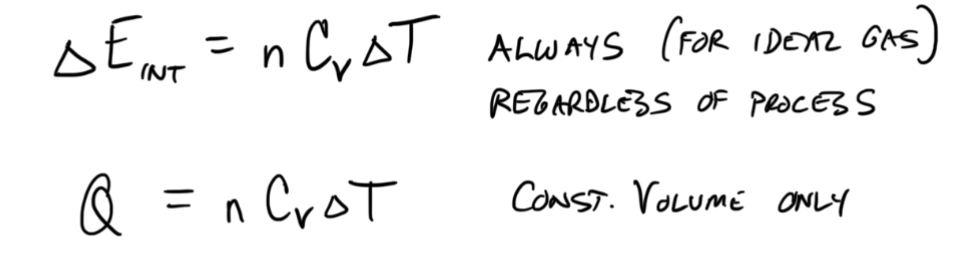 ΔE_INT = n C_v ΔT ALWAYS (FOR IDEAL GAS)
REGARDLESS OF PROCESS
Q = n C_v ΔT CONST. VOLUME ONLY